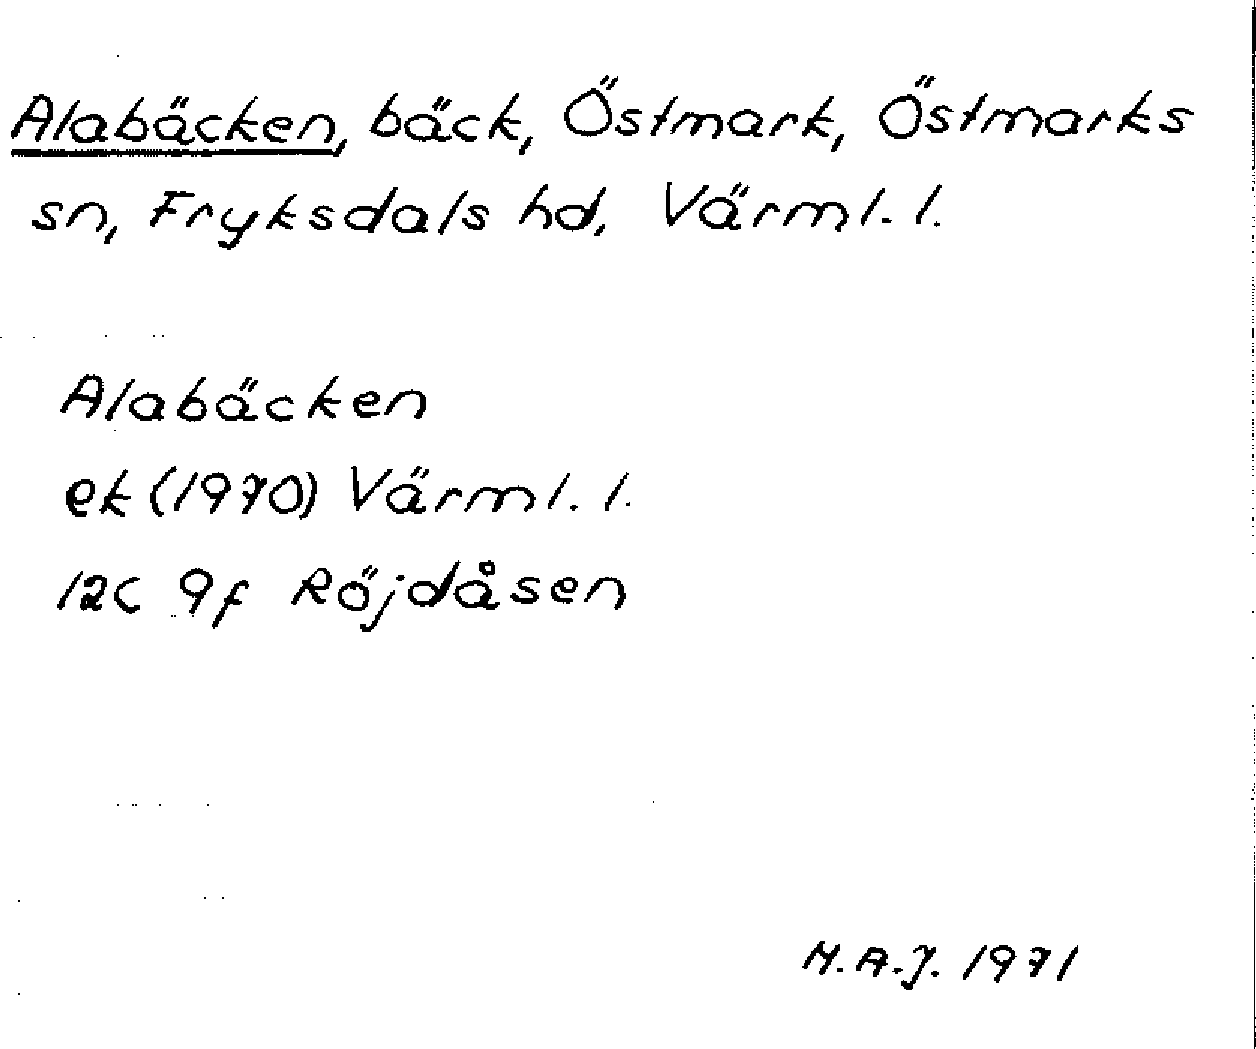 Alabäcken, bäck, Östmark, Östmarks
sn, Fryksdals hd, Värml. l.
Alabäcken
ek (1970) Värml. l.
12C 9f Röjdåsen
M.A.J. 1971